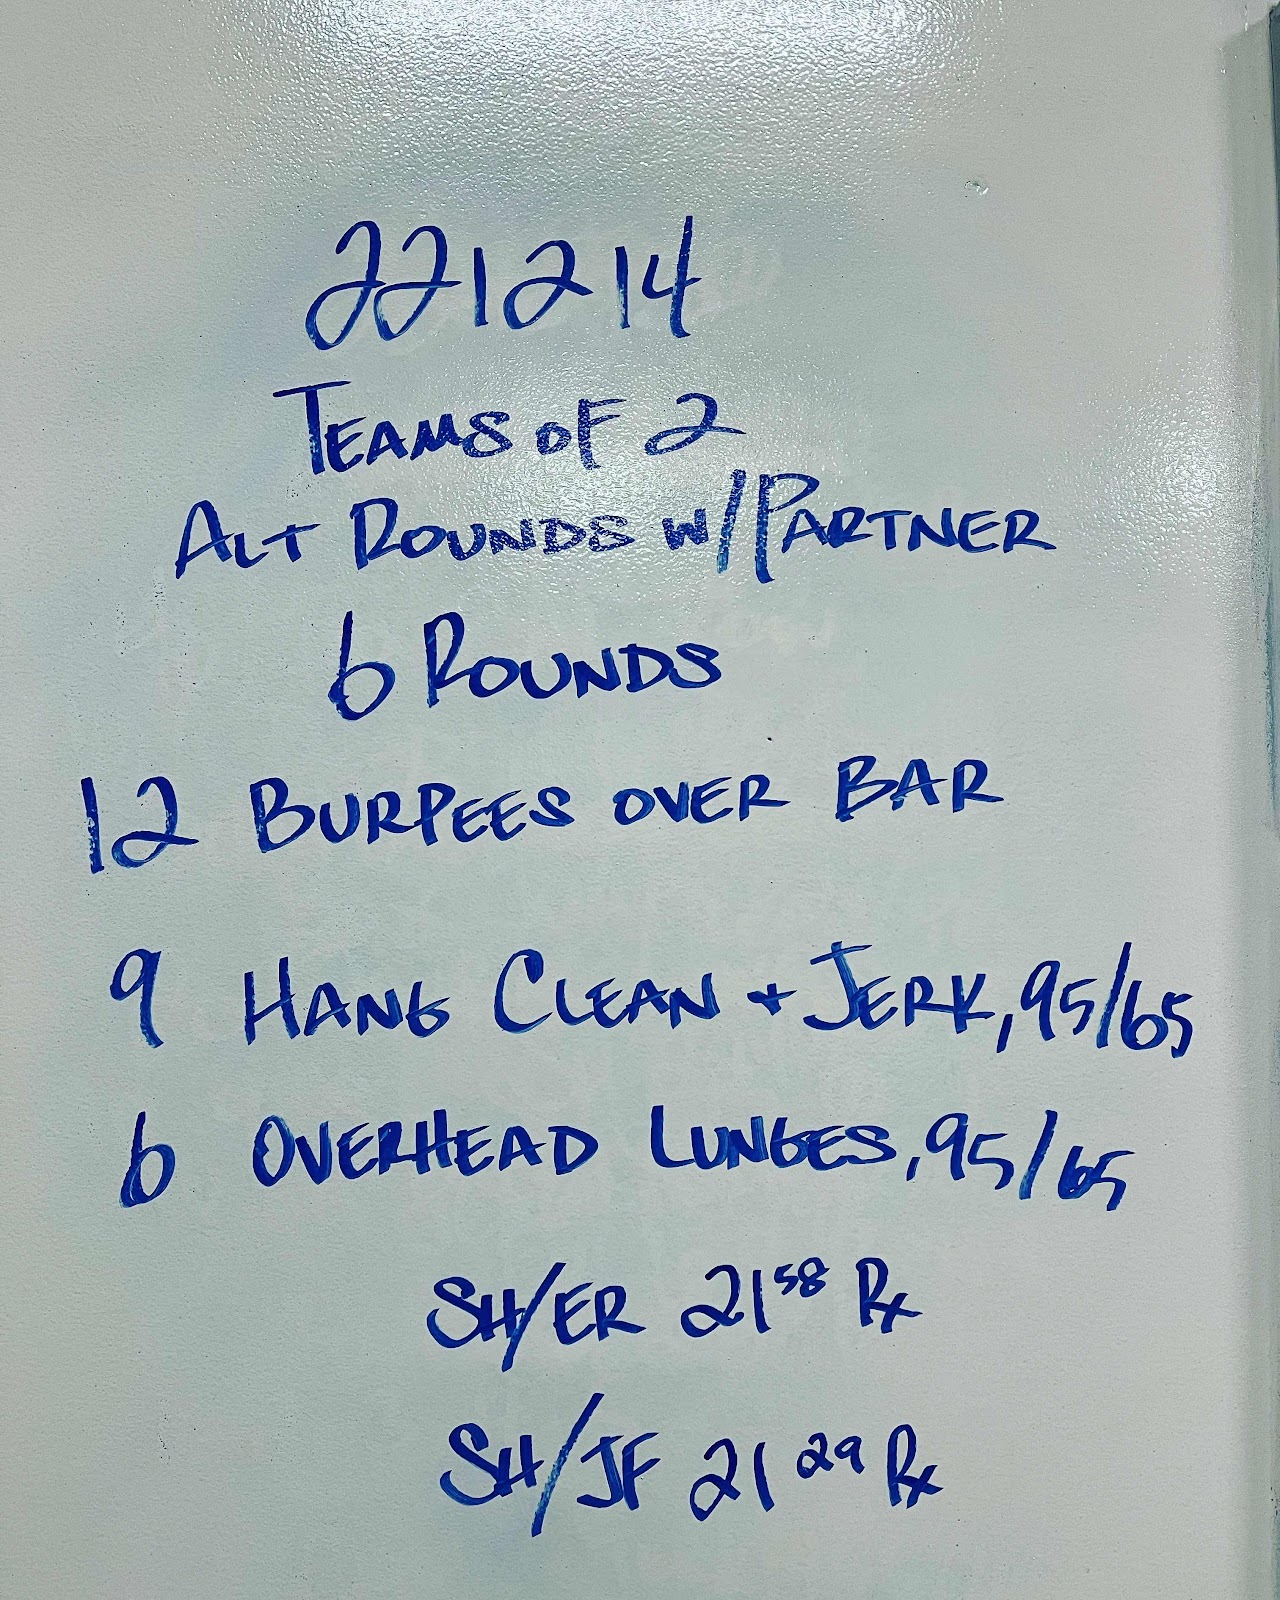 221214
TEAMS OF 2
ALT ROUNDS W/PARTNER
6 ROUNDS
12 BURPEES OVER BAR
9 HANG CLEAN + JERK, 95/65
6 OVERHEAD LUNGES, 95/65
SH/ER 21 58 Rx
SH/JF 21 29 Rx